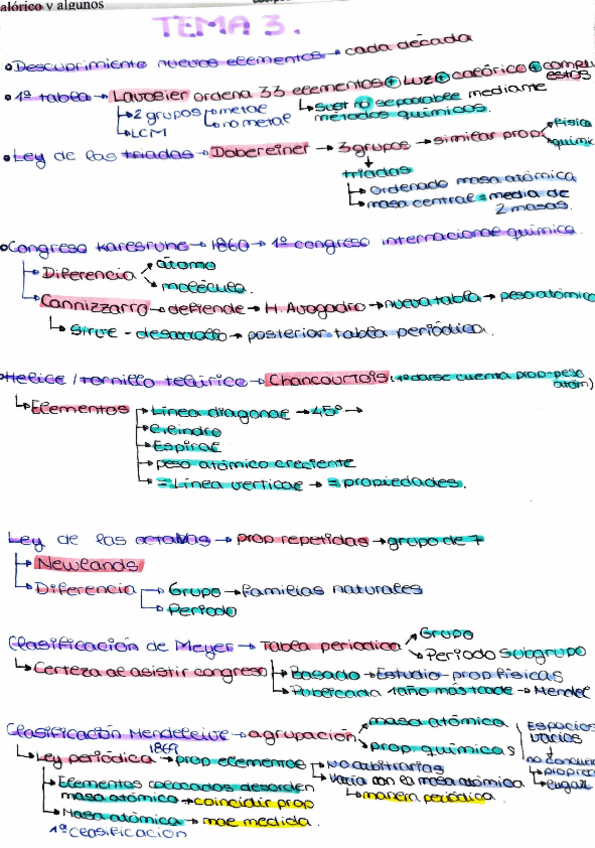 alórico y algunos
TEMA 3.
Descubrimiento nuevos elementos → cada década
1ª tabla → Lavosier ordena 33 elementos ⊕ Luz ⊕ calórico ⊕
2 grupos → metal
no metal
LCM
Sust no separables mediante métodos químicos.
estos
Ley de las triadas → Dobereiner → 3 grupos → similar prop
física
químic
triadas
ordenado masa atómica
masa central = media de
2 masas.
Congreso Karlsruhe → 1860 → 1º congreso internacional química.
Diferencia
átomo
molécula.
Cannizzarro → defiende → H. Avogadro → nueva tabla → peso atómico
Sirve - desarrollo → posterior tabla periódica.
Helice / tornillo telúrico → Chancourtois (1º darse cuenta prop-peso
atóm)
Elementos
Línea diagonal → 45º →
Cilindro
Espiral
peso atómico creciente
= Línea vertical → = propiedades.
Ley de las octavas → prop repetidas → grupo de 7
Newlands
Diferencia
Grupo → familias naturales
Periodo
Clasificación de Meyer → Tabla periodica
Grupo
Periodo subgrupo
Certeza al asistir congreso
Basado → Estudio - prop físicas
Publicada 1 año más tade → Mendel
Clasificación Mendeleive → agrupación
masa atómica
prop químicas
Espacios
vacios
no
Ley periódica → prop elementos
1869
No arbitrarias
Varia con la masa atómica
manera periódica.
lugar
Elementos colocados desorden
masa atómica → coincidir prop
Masa atómica → mal medida.
1ª Clasificación